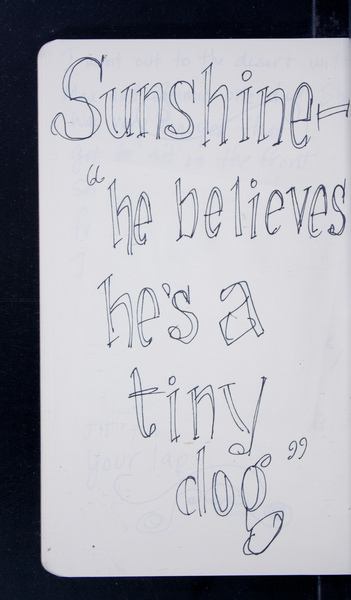 Sunshine—
“he believes
he's a
tiny
dog”